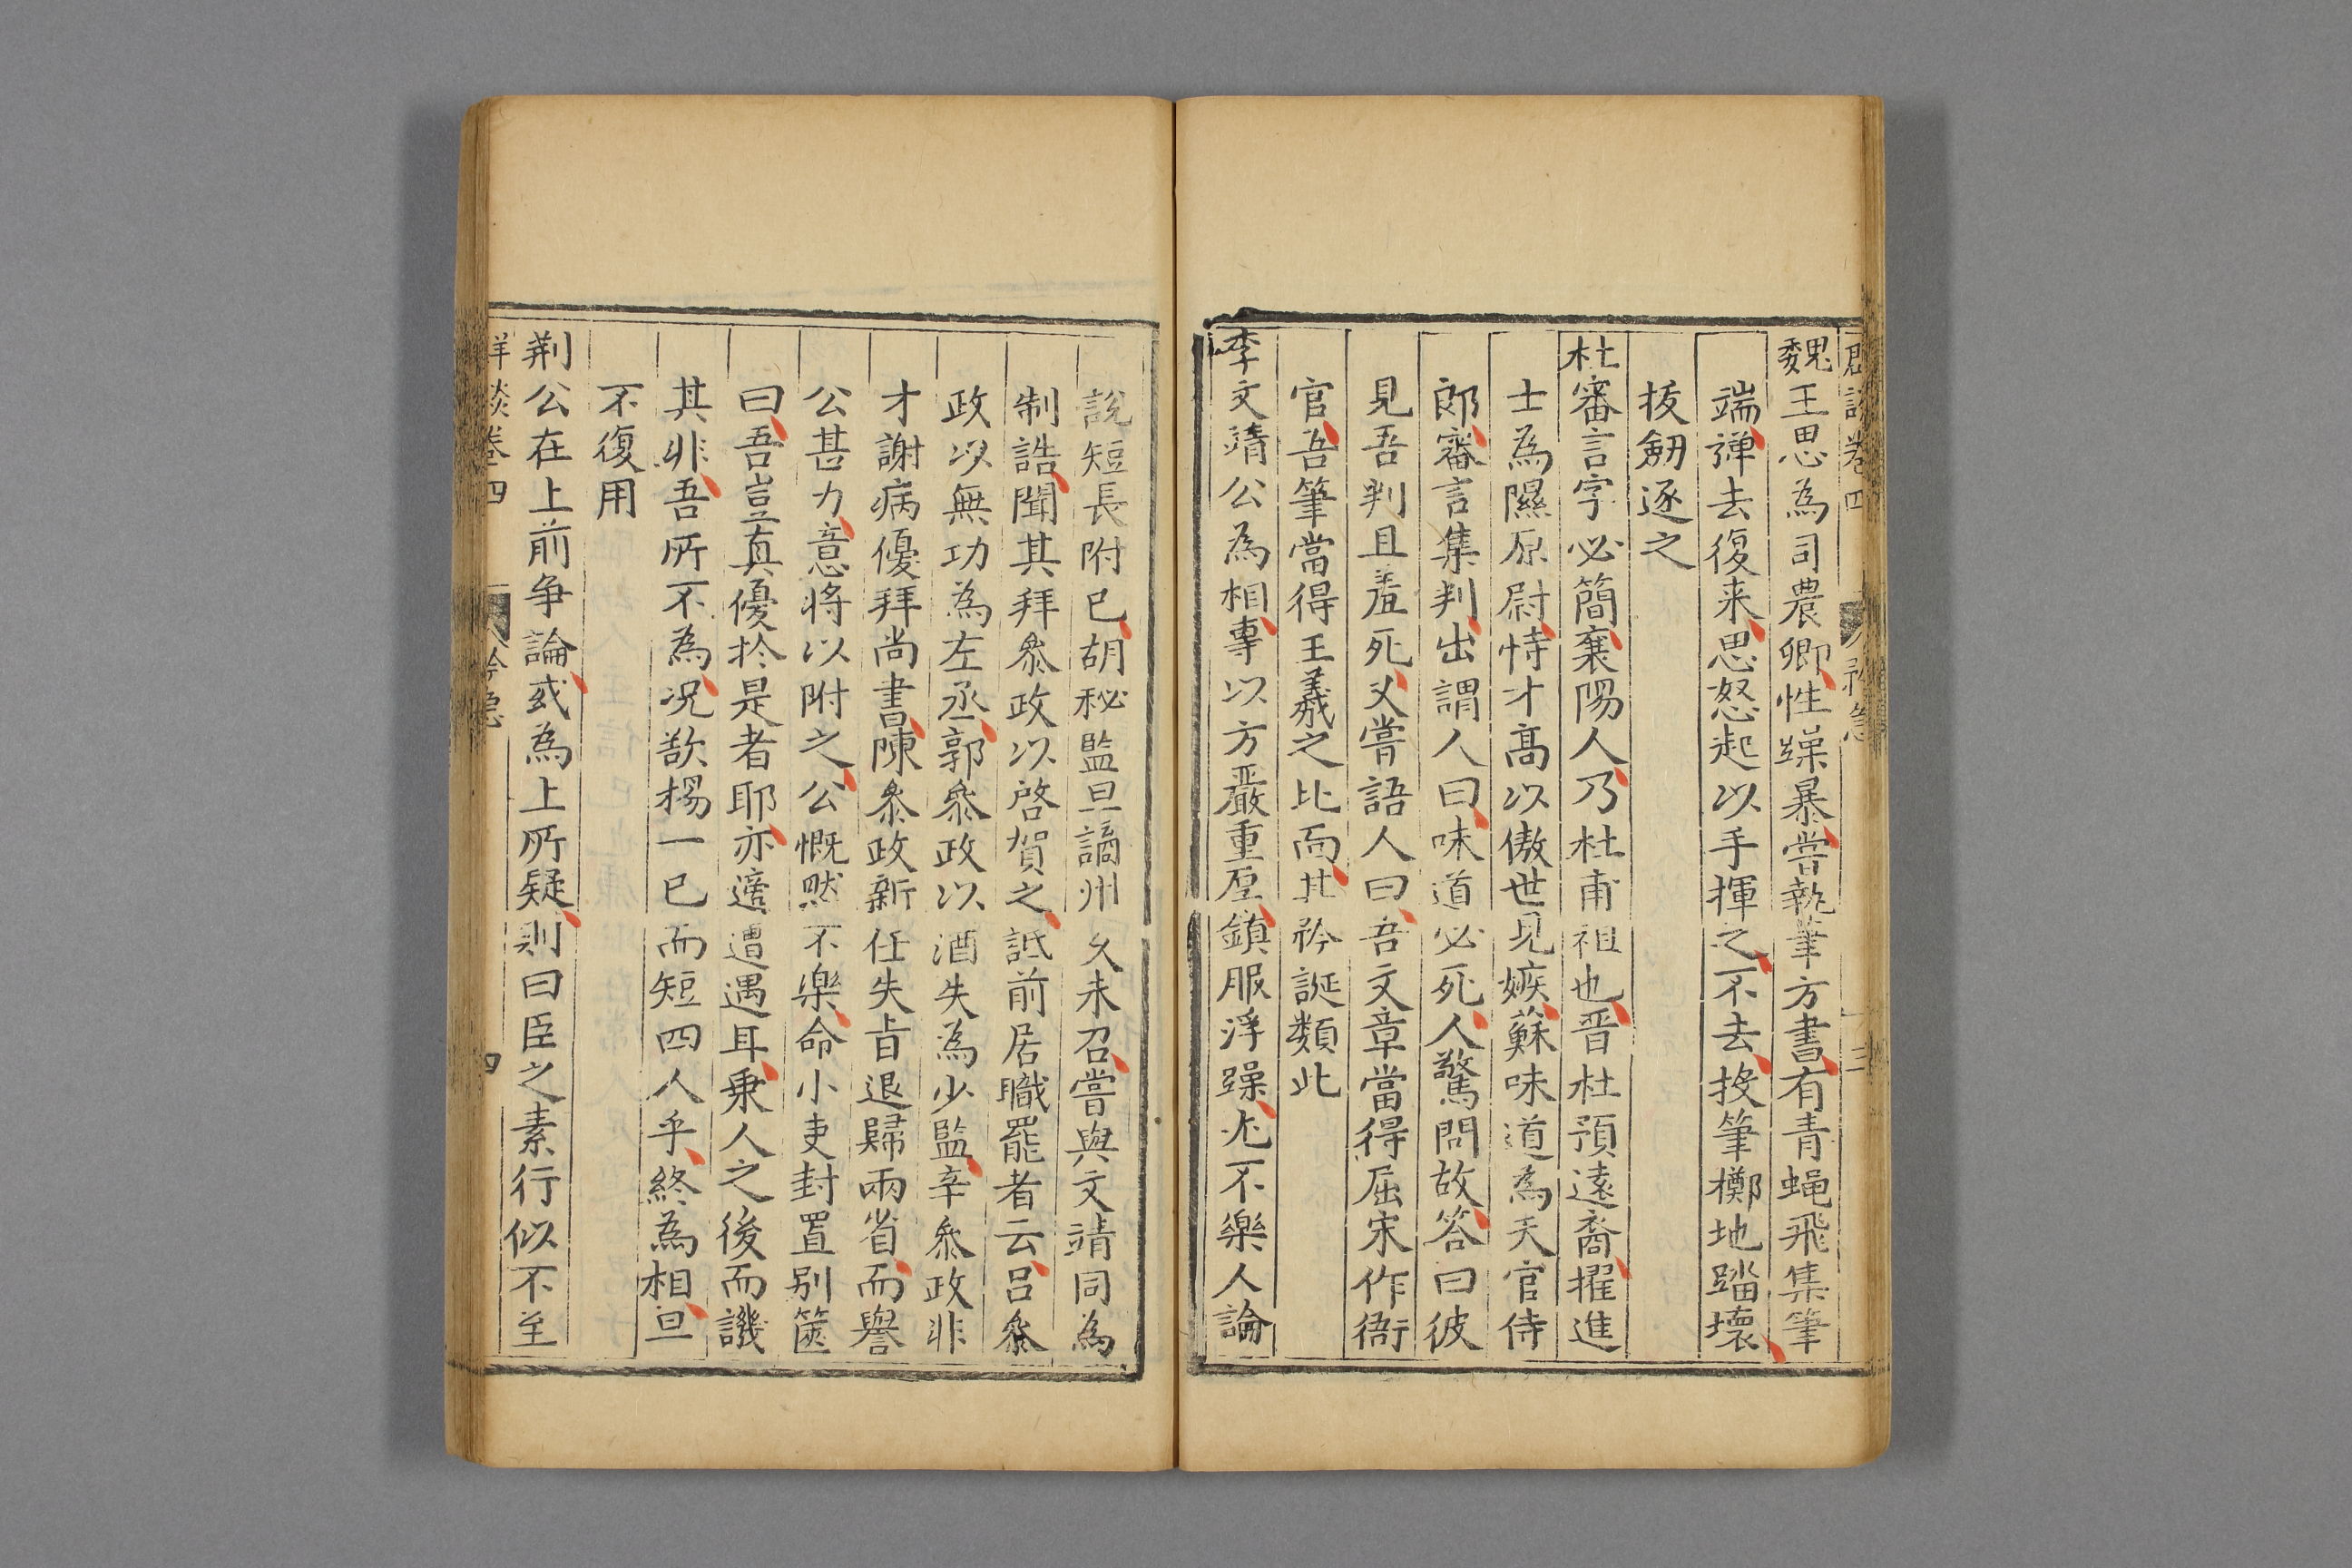 魏王思為司農卿性躁暴嘗執筆方書有青蝇飛集筆
端彈去復来思怒起以手揮之不去投筆擲地踏壞
拔劒逐之
杜審言字必簡襄陽人乃杜甫祖也晋杜預遠裔擢進
士為隰原尉恃才髙以傲世見嫉蘇味道為天官侍
郎審言集判出謂人曰味道必死人驚問故答曰彼
見吾判且羞死又嘗語人曰吾文章當得屈宋作衙
官吾筆當得王羲之比而其矜誕類此
李文靖公為相專以方嚴重厚鎮服浮躁尤不樂人論
說短長附已胡秘監旦謫州久未召嘗與文靖同為
制誥聞其拜叅政以啓賀之詆前居職罷者云吕叅
政以無功為左丞郭叅政以酒失為少監辛叅政非
才謝病優拜尚書陳叅政新任失㫖退歸兩省而譽
公甚力意将以附之公慨然不樂命小吏封置别篋
曰吾豈真優扵是者耶亦適遭遇耳乗人之後而譏
其非吾所不為况欲揚一已而短四人乎終為相旦
不復用
荆公在上前争論或為上所疑則曰臣之素行似不至
卷四
四